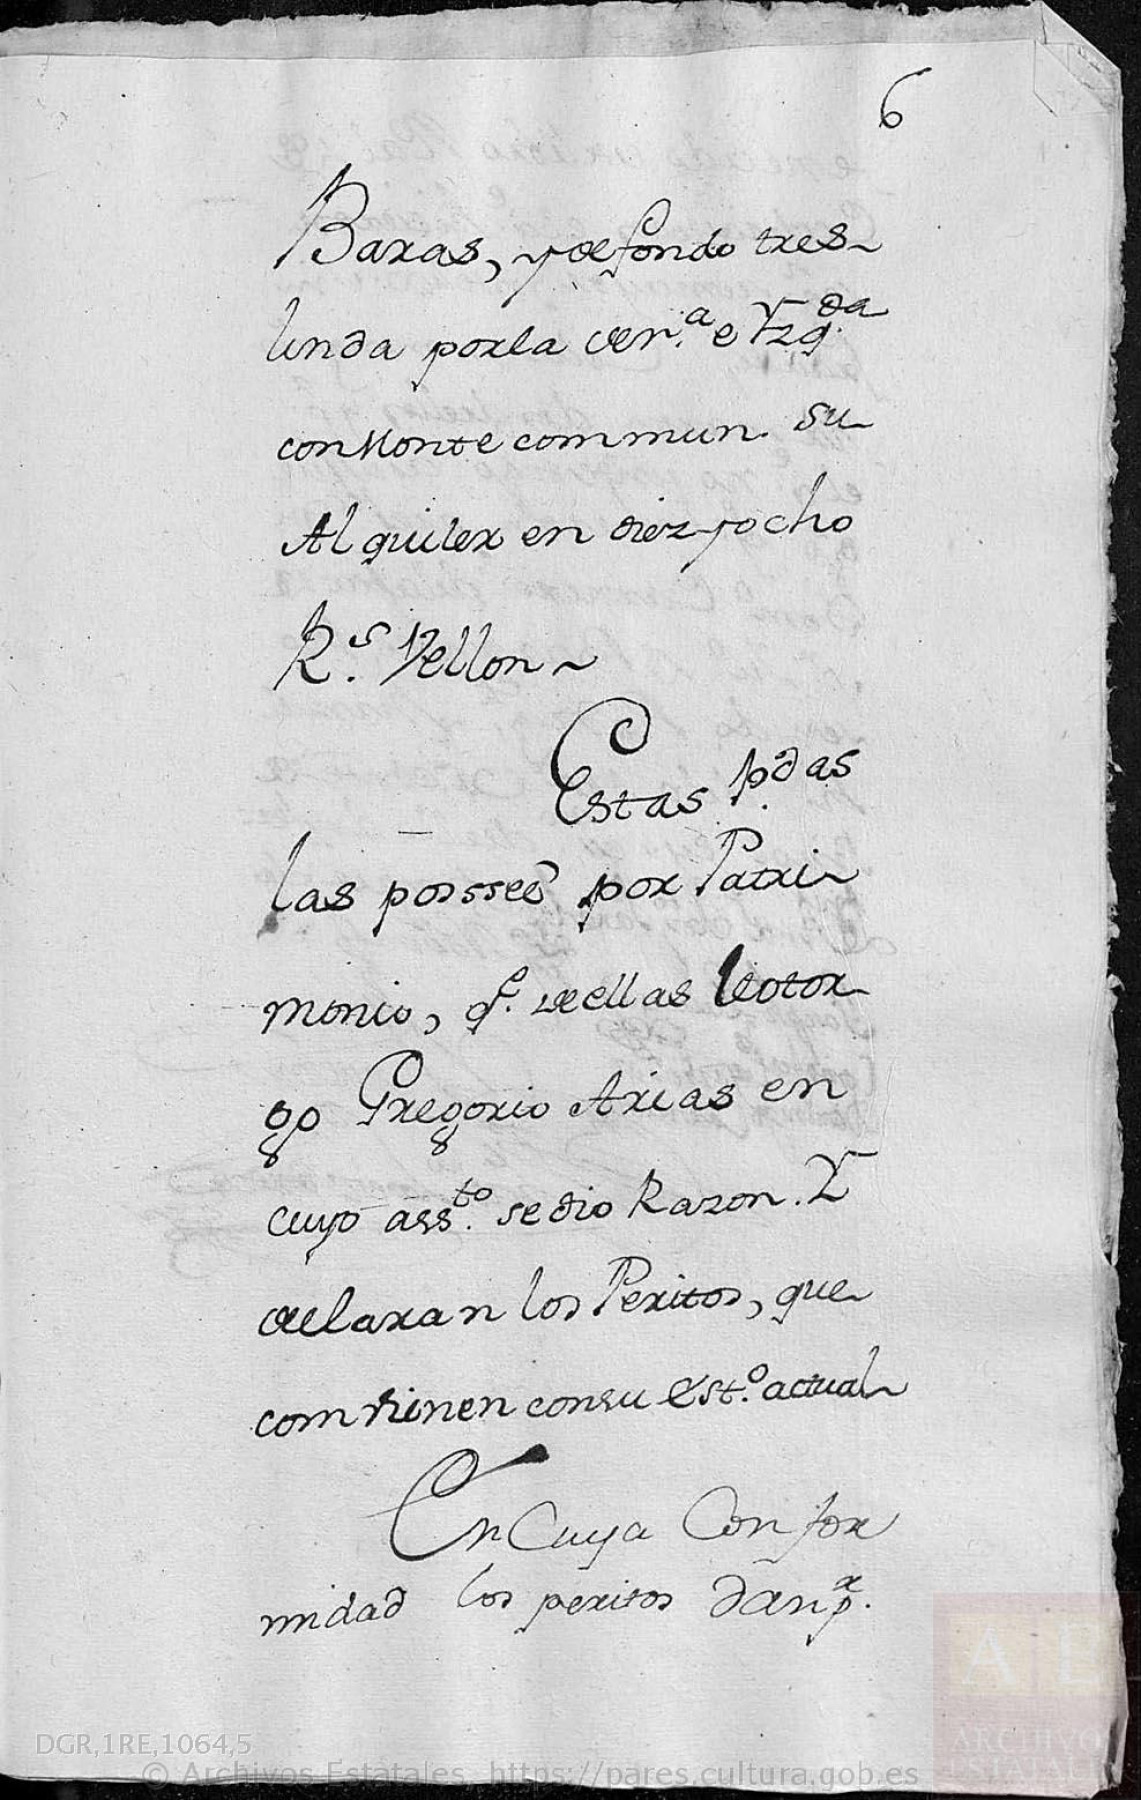 6
Baras, y de fondo tres
linda por la der.ª e Yzq.da
con Monte commun. Su
Alquiler en diez y ocho
R.s Vellon
Estas p.das
las posseé por Patri
monio, q.e de ellas le otor
go Gregorio Arias en
cuyo ass.to se dio Razon. Y
declaran los Peritos, que
combienen con su est.o actual
En Cuya Confor
midad los peritos dan p.r
DGR,1RE,1064,5
© Archivos Estatales, https://pares.cultura.gob.es
AE
ARCHIVOS
ESTATALES